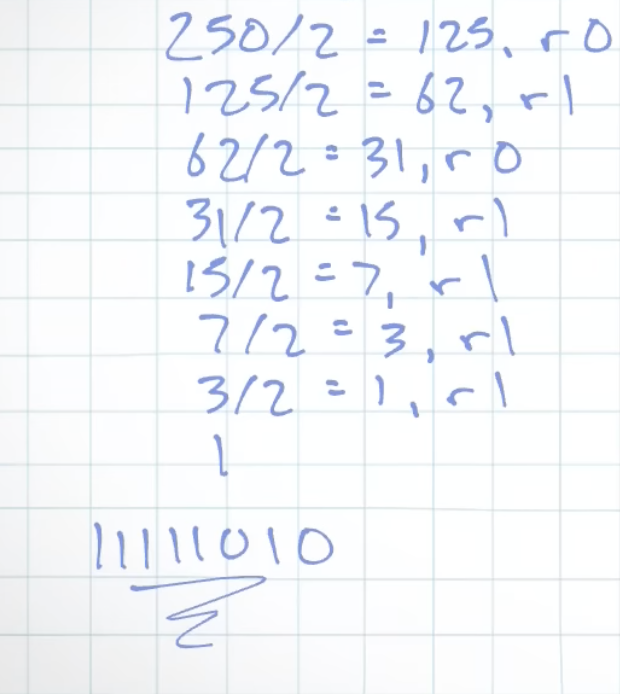 250/2 = 125, r0
125/2 = 62, r1
62/2 = 31, r0
31/2 = 15, r1
15/2 = 7, r1
7/2 = 3, r1
3/2 = 1, r1
1
11111010